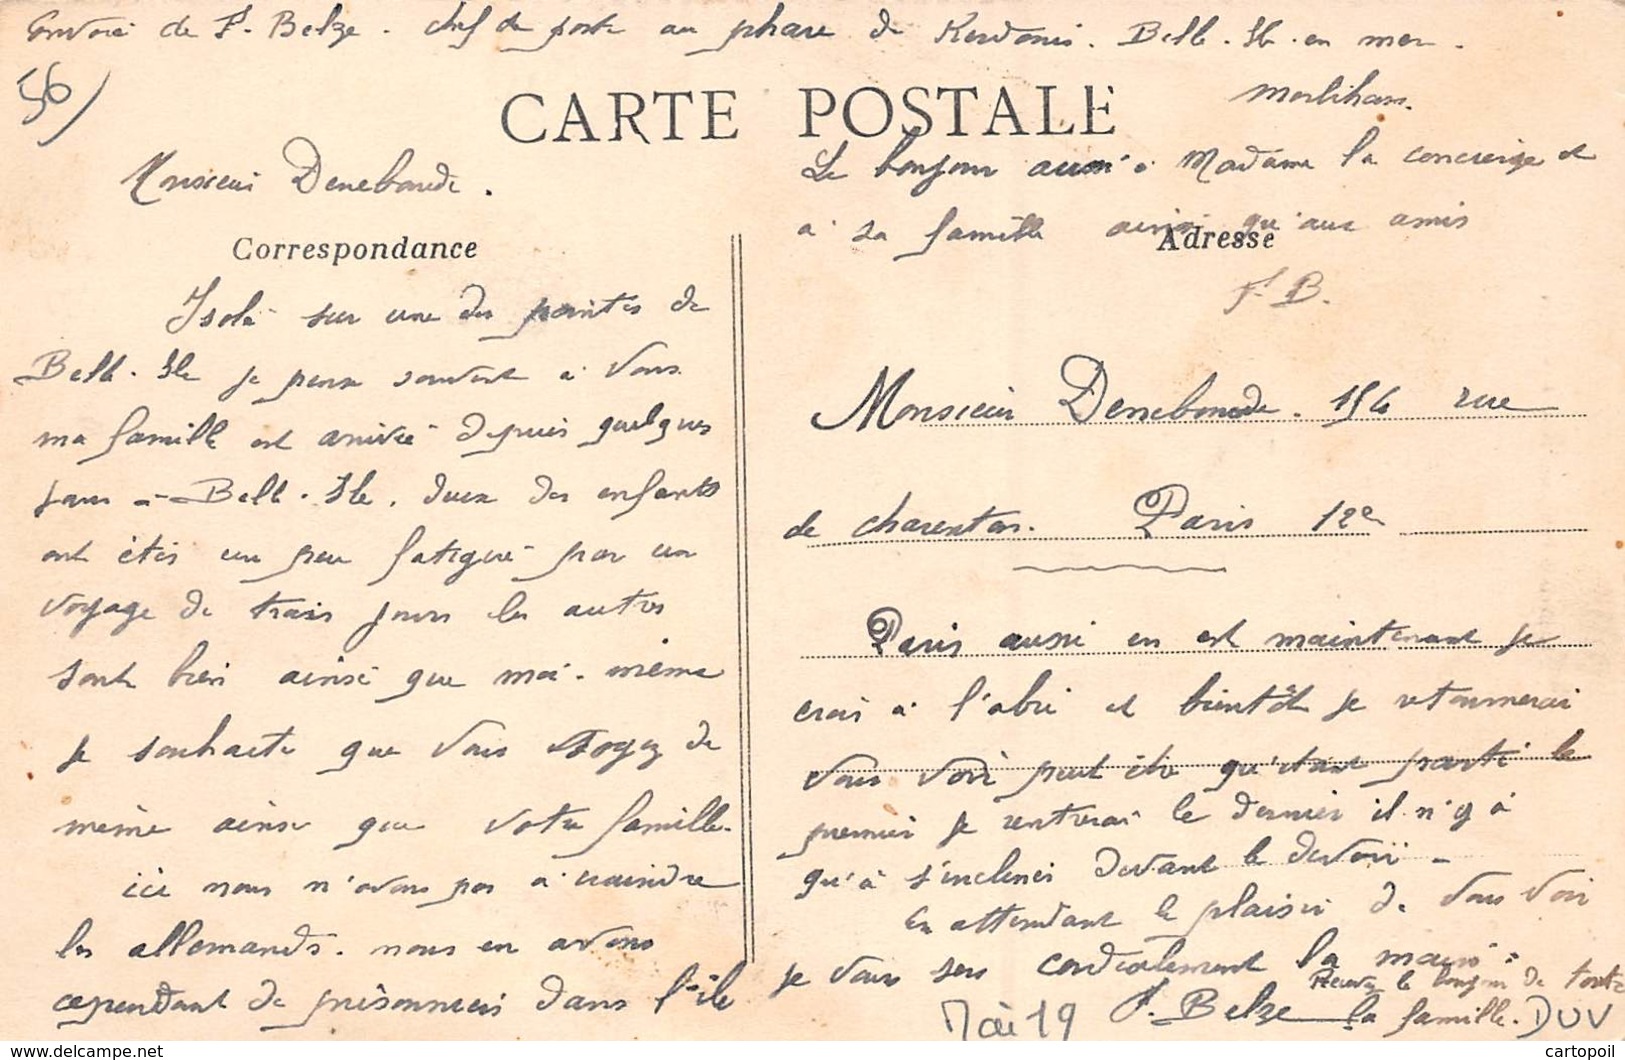 Envoi de F. Belze. chef de poste au phare de Kerdonis. Belle-Ile-en mer.
Morbihan.
56)
CARTE POSTALE
Le bonjour aussi à Madame la concierge et
à sa famille ainsi qu'aux amis
F. B.
Monsieur Deneboude.
Correspondance
Adresse
Isolé sur une des pointes de
Belle-Ile je pense souvent à vous
ma famille est arrivée depuis quelques
jours à Belle-Ile. deux des enfants
ont étés un peu fatigué par un
voyage de trois jours les autres
sont bien ainsi que moi-même
je souhaite que vous soyez de
même ainsi que votre famille.
ici nous n'avons pas à craindre
les allemands. nous en avons
cependant de prisonniers dans l'île
Monsieur Deneboude. 154 rue
de charenton. Paris 12e
Paris aussi en est maintenant je
crois à l'abri et bientôt je retournerai
vous voir peut être qu'étant parti le
premier je rentrerai le dernier il n'y à
qu'à s'incliner devant le devoir -
En attendant le plaisir de vous voir
je vous sers cordialement la main.
Recevez le bonjour de toute
la famille.
F. Belze
Mai 19
DUV
cartopoil